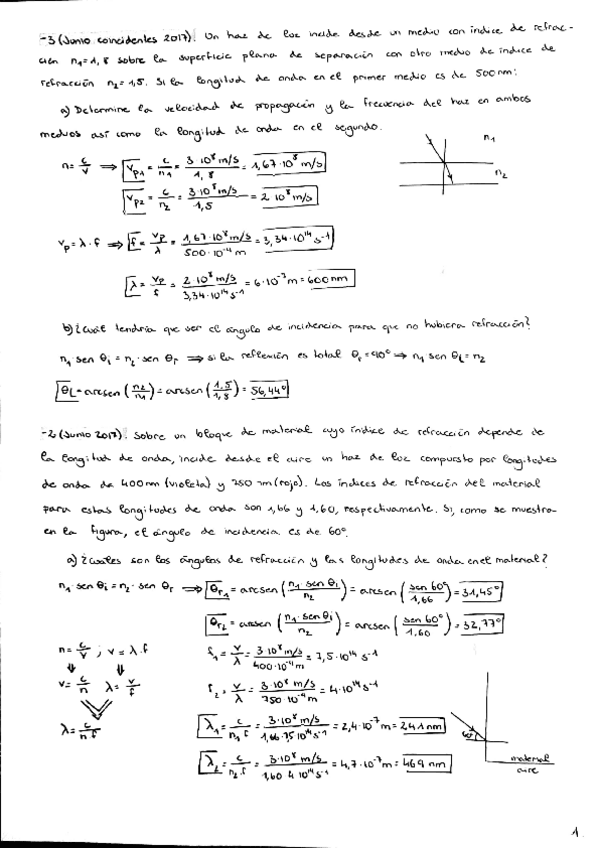 -3 (Junio coincidentes 2017). Un haz de luz incide desde un medio con índice de refrac-
ción n₁=1,8 sobre la superficie plana de separación con otro medio de índice de
refracción n₂=1,5. Si la longitud de onda en el primer medio es de 500nm:
a) Determine la velocidad de propagación y la frecuencia del haz en ambos
medios así como la longitud de onda en el segundo.
n= c/v ⟹ Vp1 = c/n₁ = 3·10⁸ m/s / 1,8 = 1,67·10⁸ m/s
n₁
n₂
Vp2 = c/n₂ = 3·10⁸ m/s / 1,5 = 2·10⁸ m/s
Vp=λ·f ⟹ f = Vp/λ = 1,67·10⁸ m/s / 500·10⁻⁹ m = 3,34·10¹⁴ s⁻¹
λ = Vp/f = 2·10⁸ m/s / 3,34·10¹⁴ s⁻¹ = 6·10⁻⁷ m = 600nm
b) ¿Cuál tendría que ser el ángulo de incidencia para que no hubiera refracción?
n₁·sen θi = n₂·sen θr ⟹ si la reflexión es total θr=90° ⟹ n₁ sen θL = n₂
θL = arcsen (n₂/n₁) = arcsen (1,5/1,8) = 56,44°
-2 (Junio 2017). Sobre un bloque de material cuyo índice de refracción depende de
la longitud de onda, incide desde el aire un haz de luz compuesto por longitudes
de onda de 400nm (violeta) y 750nm (rojo). Los índices de refracción del material
para estas longitudes de onda son 1,66 y 1,60, respectivamente. Si, como se muestra
en la figura, el ángulo de incidencia es de 60°.
a) ¿Cuáles son los ángulos de refracción y las longitudes de onda en el material?
n₁ sen θi = n₂ · sen θr ⟹ θr1 = arcsen (n₁ sen θi / n₂) = arcsen (sen 60° / 1,66) = 31,45°
θr2 = arcsen (n₁ sen θi / n₂) = arcsen (sen 60° / 1,60) = 32,77°
n = c/v ; v = λ·f
f₁ = v/λ = 3·10⁸ m/s / 400·10⁻⁹ m = 7,5·10¹⁴ s⁻¹
v = c/n λ = v/f
f₂ = v/λ = 3·10⁸ m/s / 750·10⁻⁹ m = 4·10¹⁴ s⁻¹
λ = c/nf
λ₁ = c/n₁f = 3·10⁸ m/s / 1,66·7,5·10¹⁴ s⁻¹ = 2,4·10⁻⁷ m = 241nm
60°
material
aire
λ₂ = c/n₂·f = 3·10⁸ m/s / 1,60·4·10¹⁴ s⁻¹ = 4,7·10⁻⁷ m = 469 nm
1